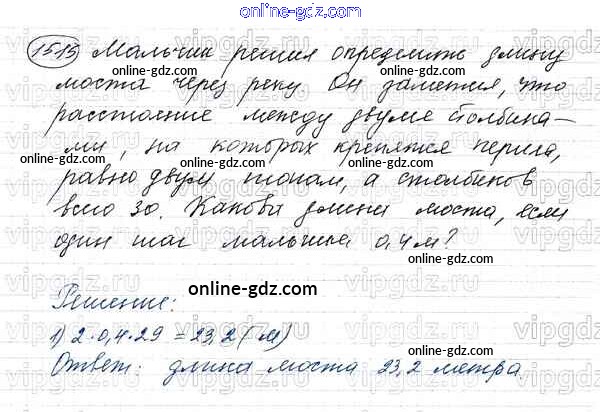 online-gdz.com
1515 Мальчик решил определить длину
online-gdz.com online-gdz.com
моста через реку Он заметил, что
расстояние между двумя столбика-
online-gdz.com
ми, на которых крепятся перила,
online-gdz.com online-gdz.com
равно двум шагам, а столбиков
всего 30. Какова длина моста, если
online-gdz.com
один шаг мальчика 0,4 м?
online-gdz.com
online-gdz.com
Решение:
online-gdz.com
1) 2·0,4·29 = 23,2 (м)
online-gdz.com online-gdz.com
Ответ: длина моста 23,2 метра.
online-gdz.com